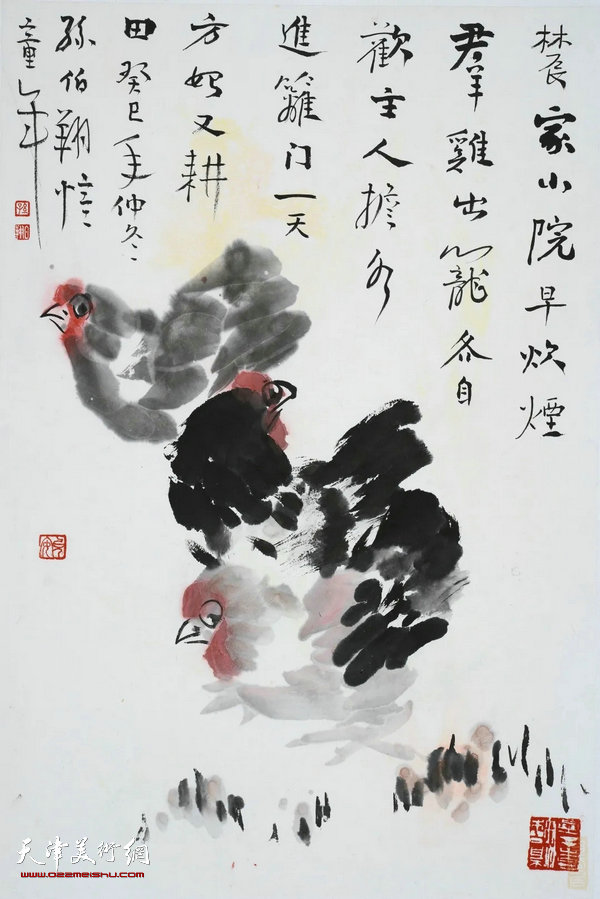 農家小院早炊煙
群雞出籠各自
歡主人擔水
進籬门一天
方始又耕
田癸巳年仲冬
孫伯翔憶
童年
天津美術網
www.022meishu.com